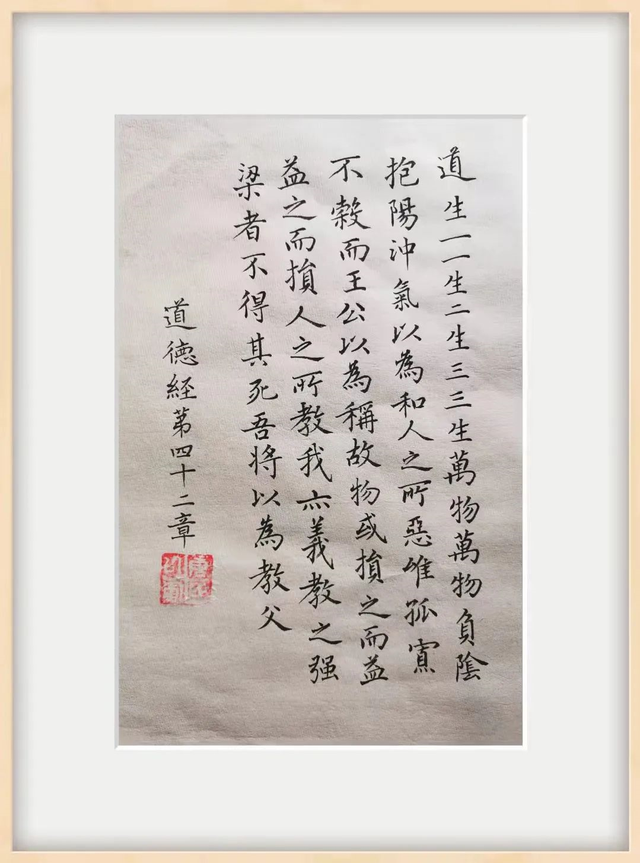 道生一一生二二生三三生萬物萬物負陰
抱陽沖氣以為和人之所惡唯孤寡
不穀而王公以為稱故物或損之而益
益之而損人之所教我亦義教之强
梁者不得其死吾將以為教父
道德經第四十二章